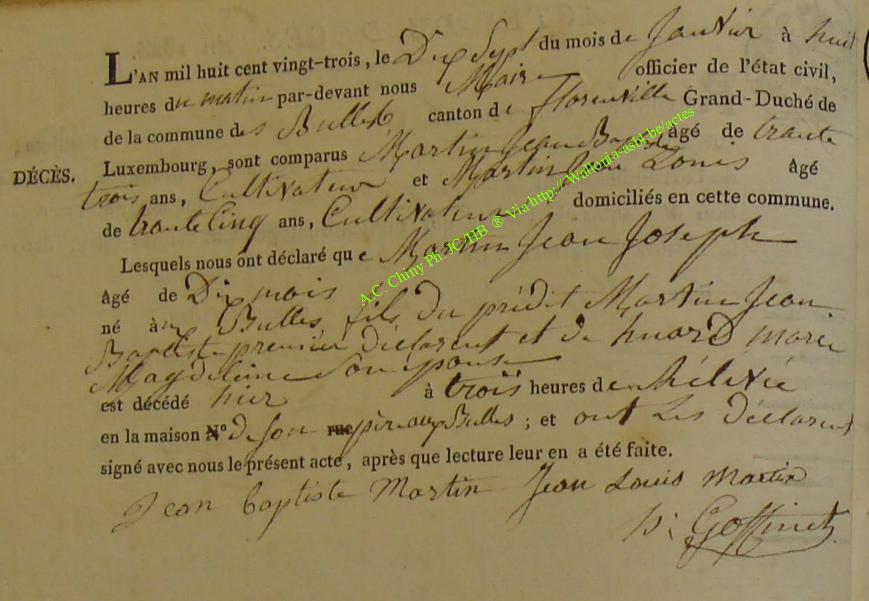 L'AN mil huit cent vingt-trois, le Dix Sept du mois de Janvier à huit
heures du matin par-devant nous Maire officier de l'état civil,
de la commune des Bulles canton de florenville Grand-Duché de
DÉCÈS. Luxembourg, sont comparus Martin Jean Baptiste âgé de trante
trois ans, Cultivateur et Martin Jean Louis âgé
de trante Cinq ans, Cultivateur domiciliés en cette commune.
Lesquels nous ont déclaré que Martin Jean Joseph
âgé de Dix mois
né aux Bulles, fils du prédit Martin Jean
Baptiste premier déclarent et de huard marie
Magdeleine Son épouse
est décédé hier à trois heures de
en la maison N° de son rue père aux Bulles ; et ont Les déclarent
signé avec nous le présent acte, après que lecture leur en a été faite.
Jean baptiste Martin Jean Louis Martin
Goffinet
A.C. Chiny Ph. JC/HB ® Via http://Wallonia-asbl.be/actes